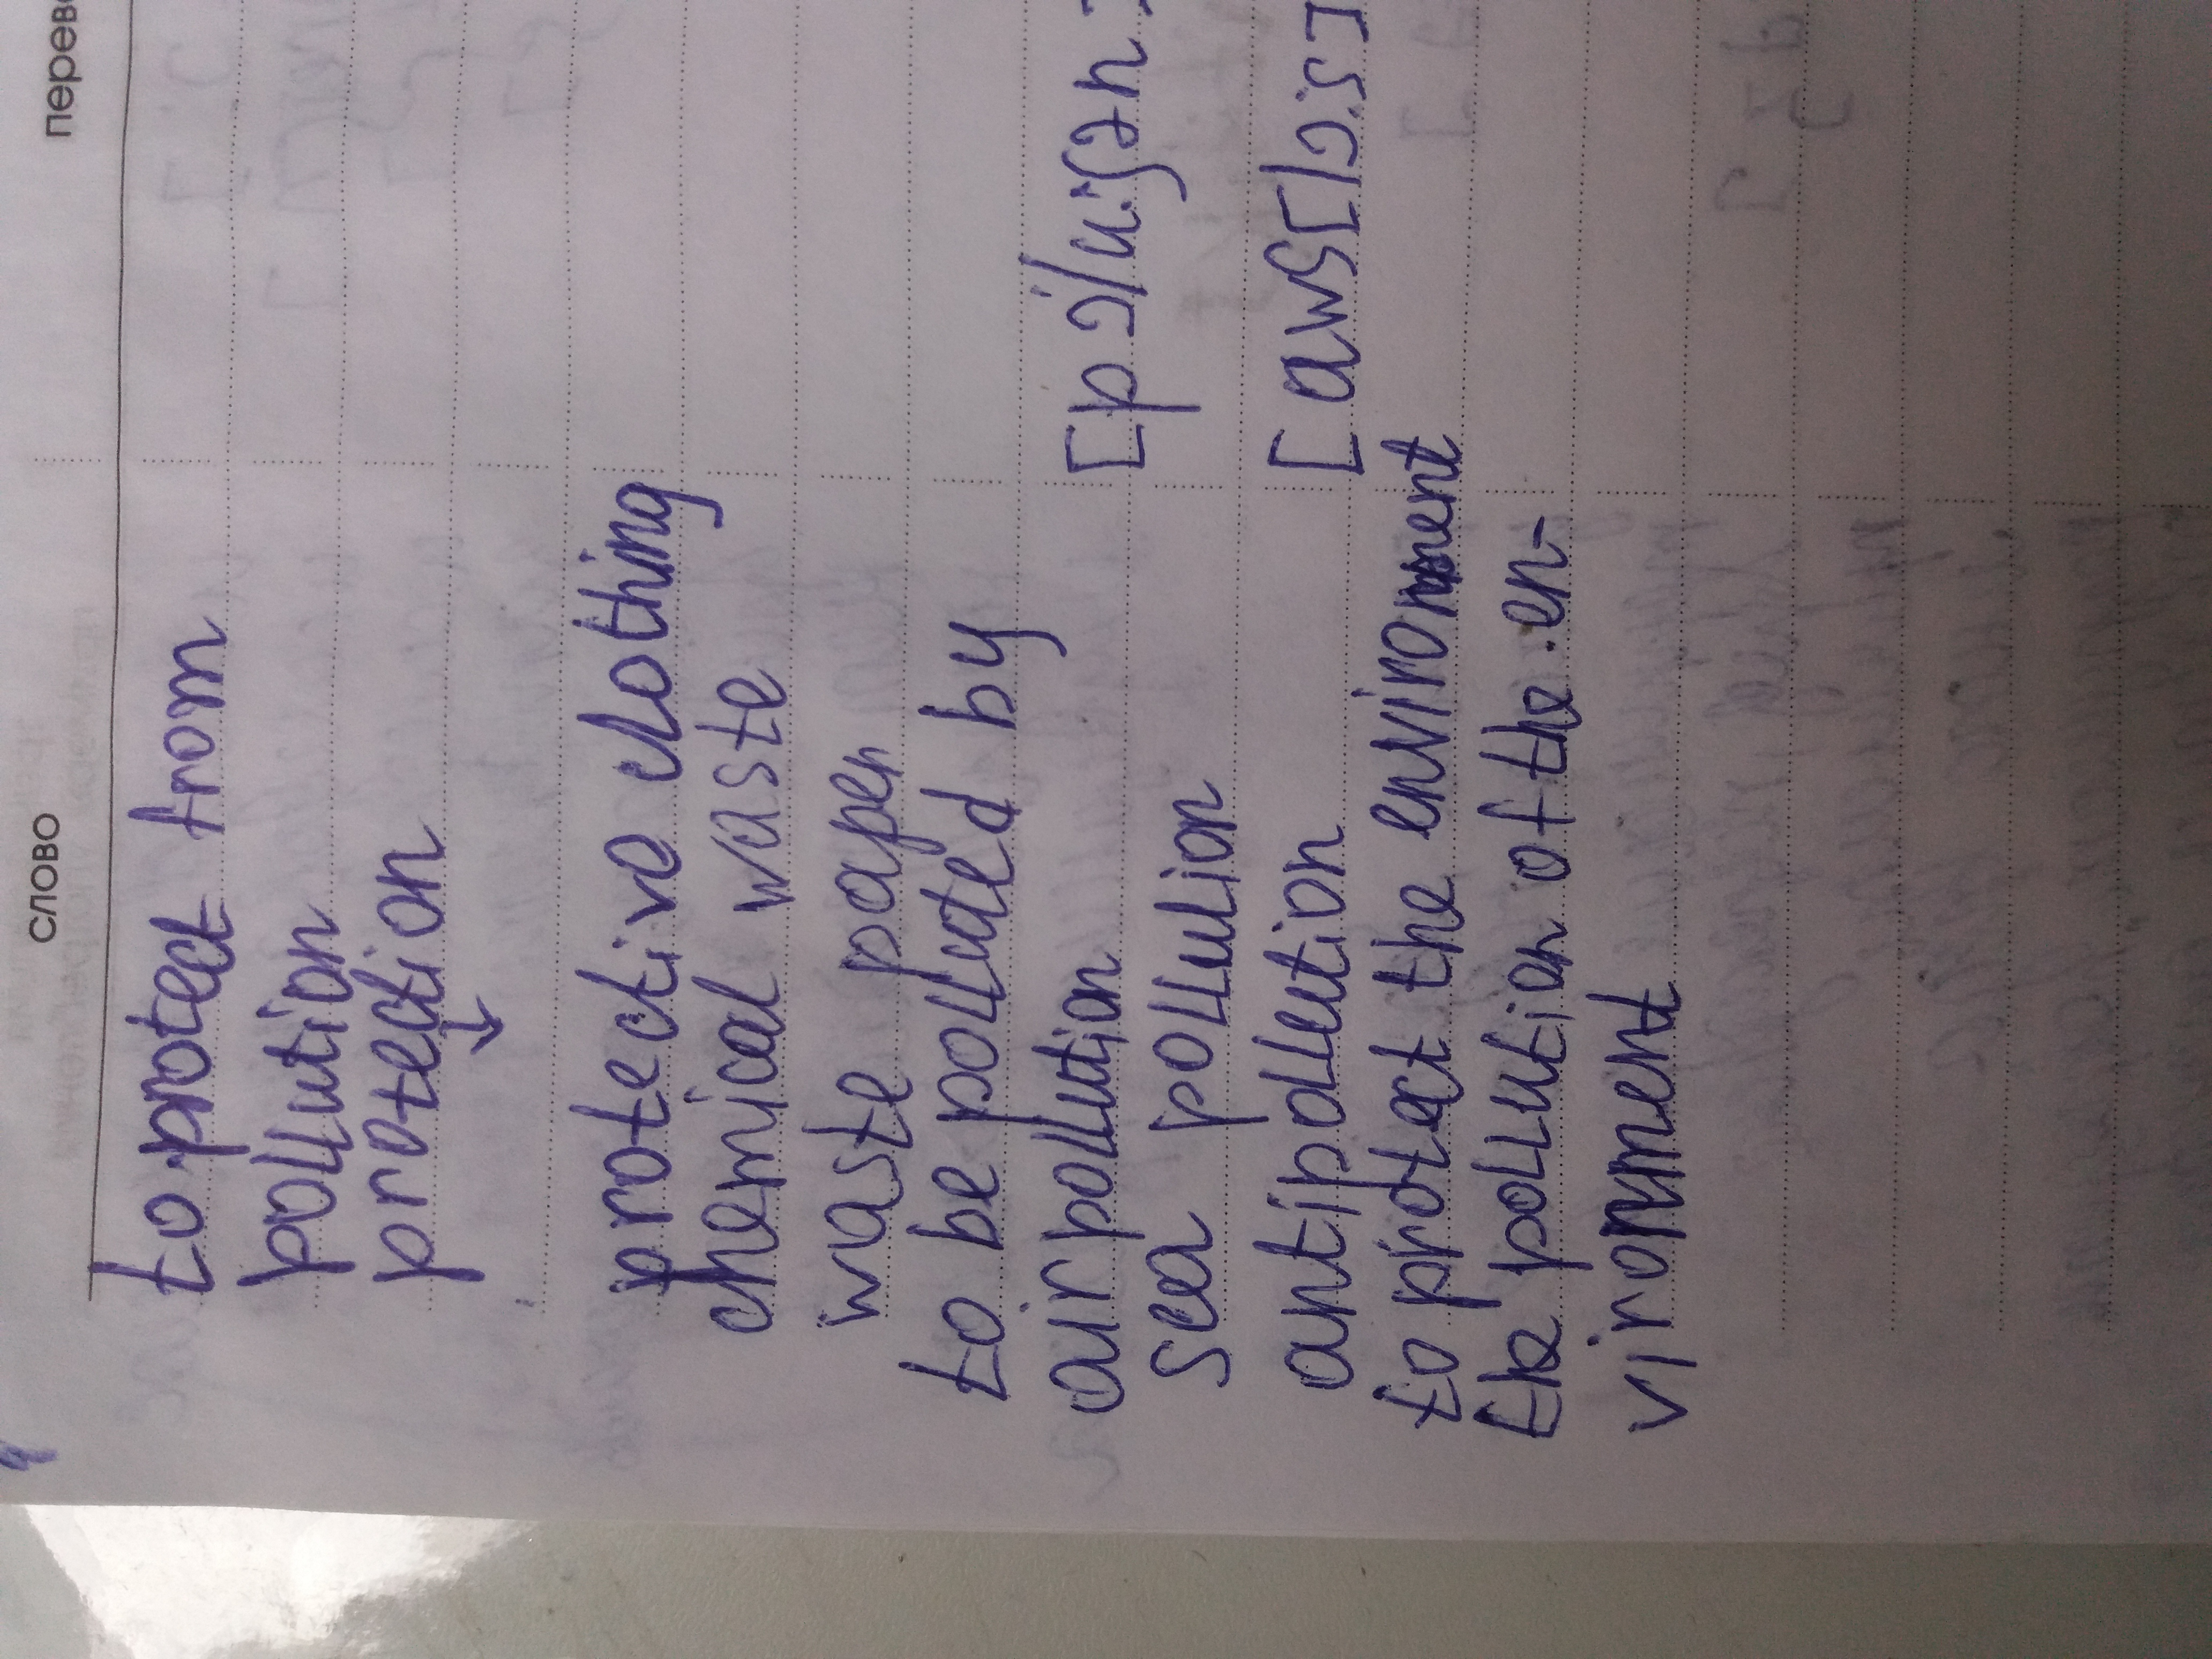 слово перево
to protect from
pollution
protection
↓
protective clothing
chemical waste
waste paper
to be polluted by
air pollution [pɔ'lu:ʃən]
sea pollulion
antipollution
to protect the environment
the pollution of the en-
vironment